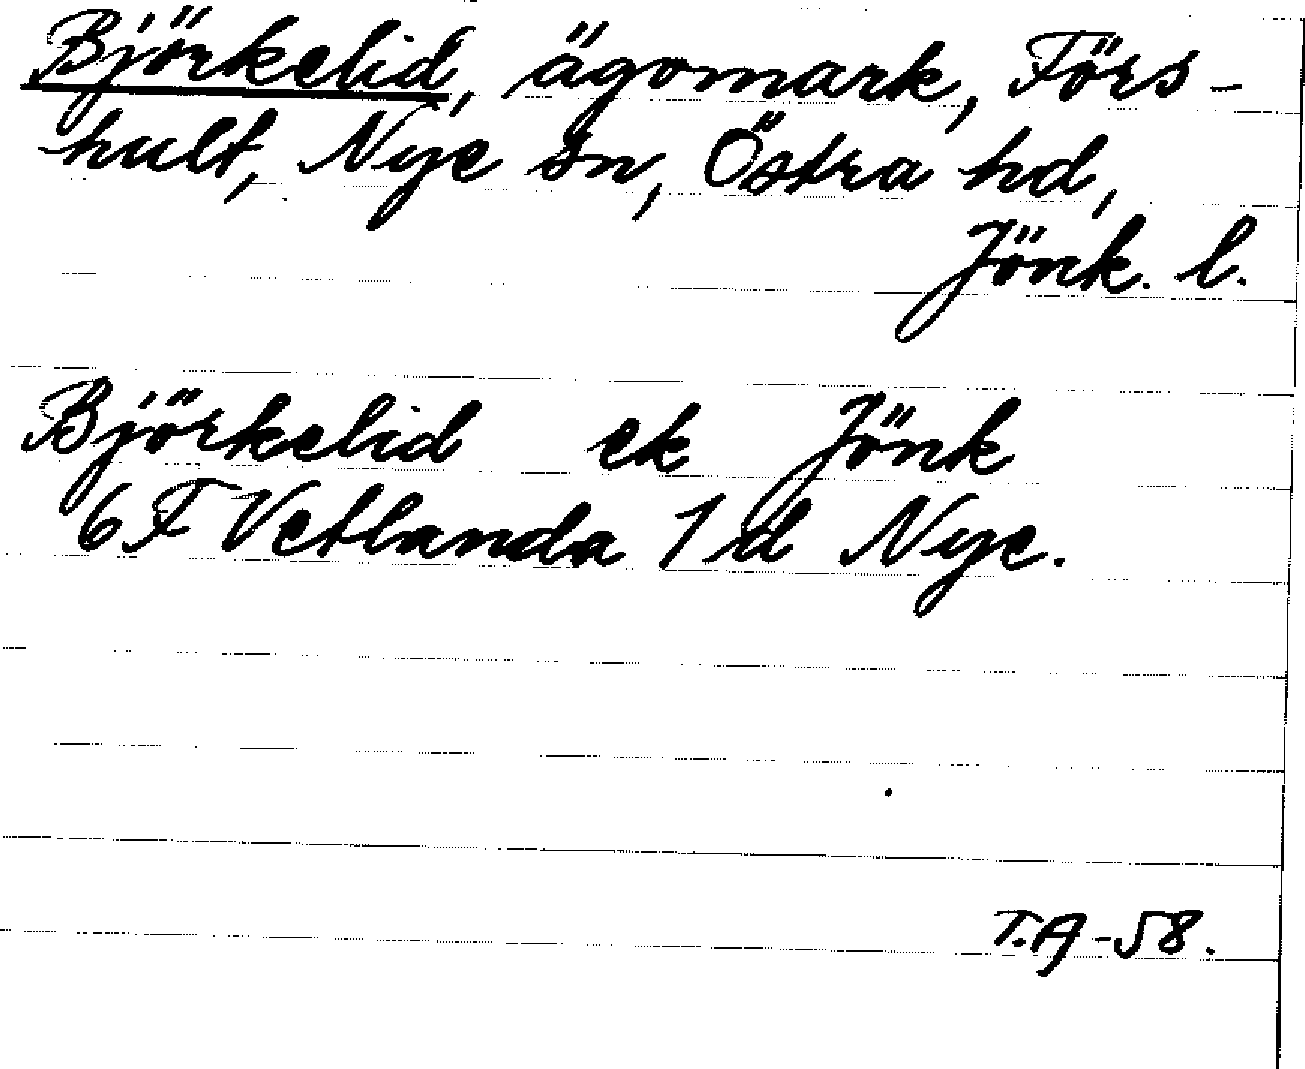 Björkelid, ägomark, Förs-
hult, Nye sn, Östra hd,
Jönk. l.
Björkelid ek Jönk
6 F Vetlanda 1 d Nye.
T.A -58.